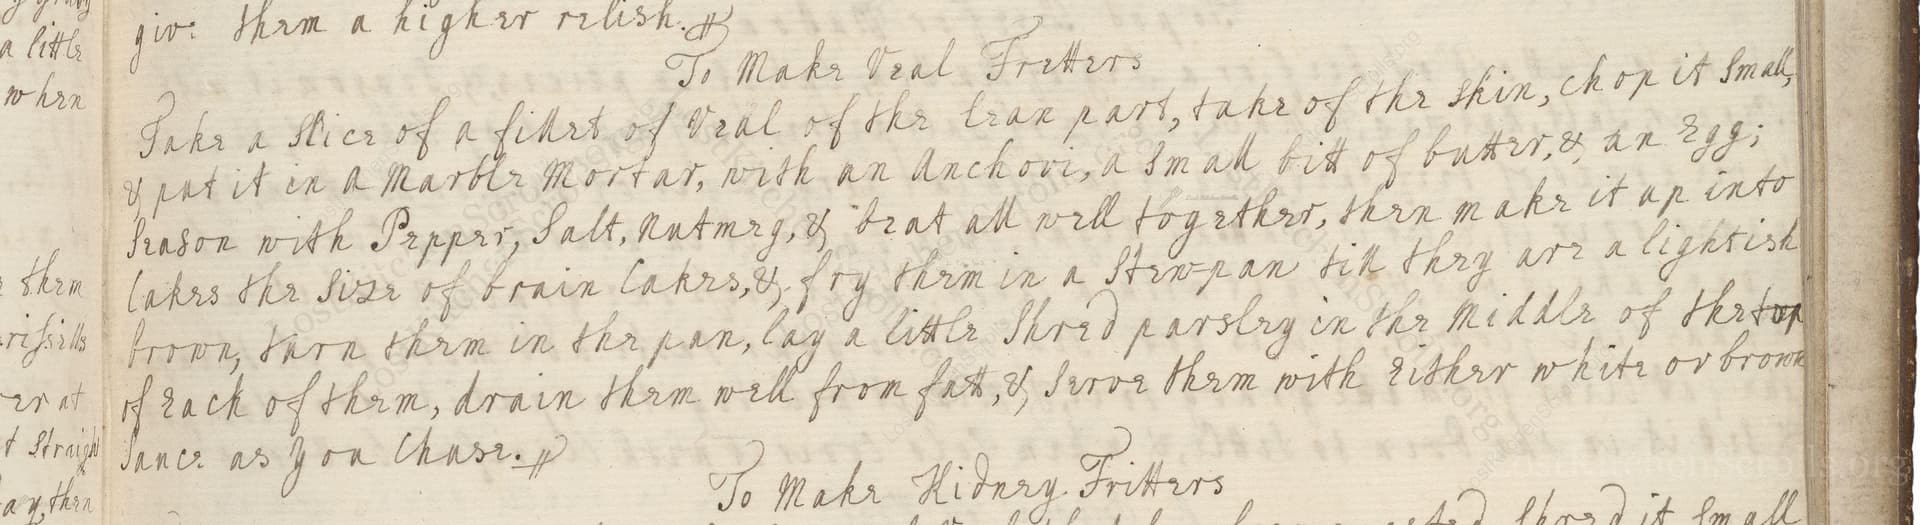 give them a higher relish.
To Make Veal Fretters
Take a Slice of a fillet of Veal of the lean part, take of the skin, chop it Small,
& put it in a Marble Mortar, with an Anchovi, a Small bitt of butter, & an Egg;
Season with Pepper, Salt, Nutmeg, & beat all well together, then make it up into
Cakes the Size of brain Cakes, & fry them in a Stew-pan till they are a lightish
brown, turn them in the pan, lay a little Shred parsley in the Middle of the top
of Each of them, drain them well from fatt, & Serve them with Either white or brown
Sance as you Chuse.
To Make Kidney Fritters
Shred it Small
a little
when
them
er at
t Straight
ay, then